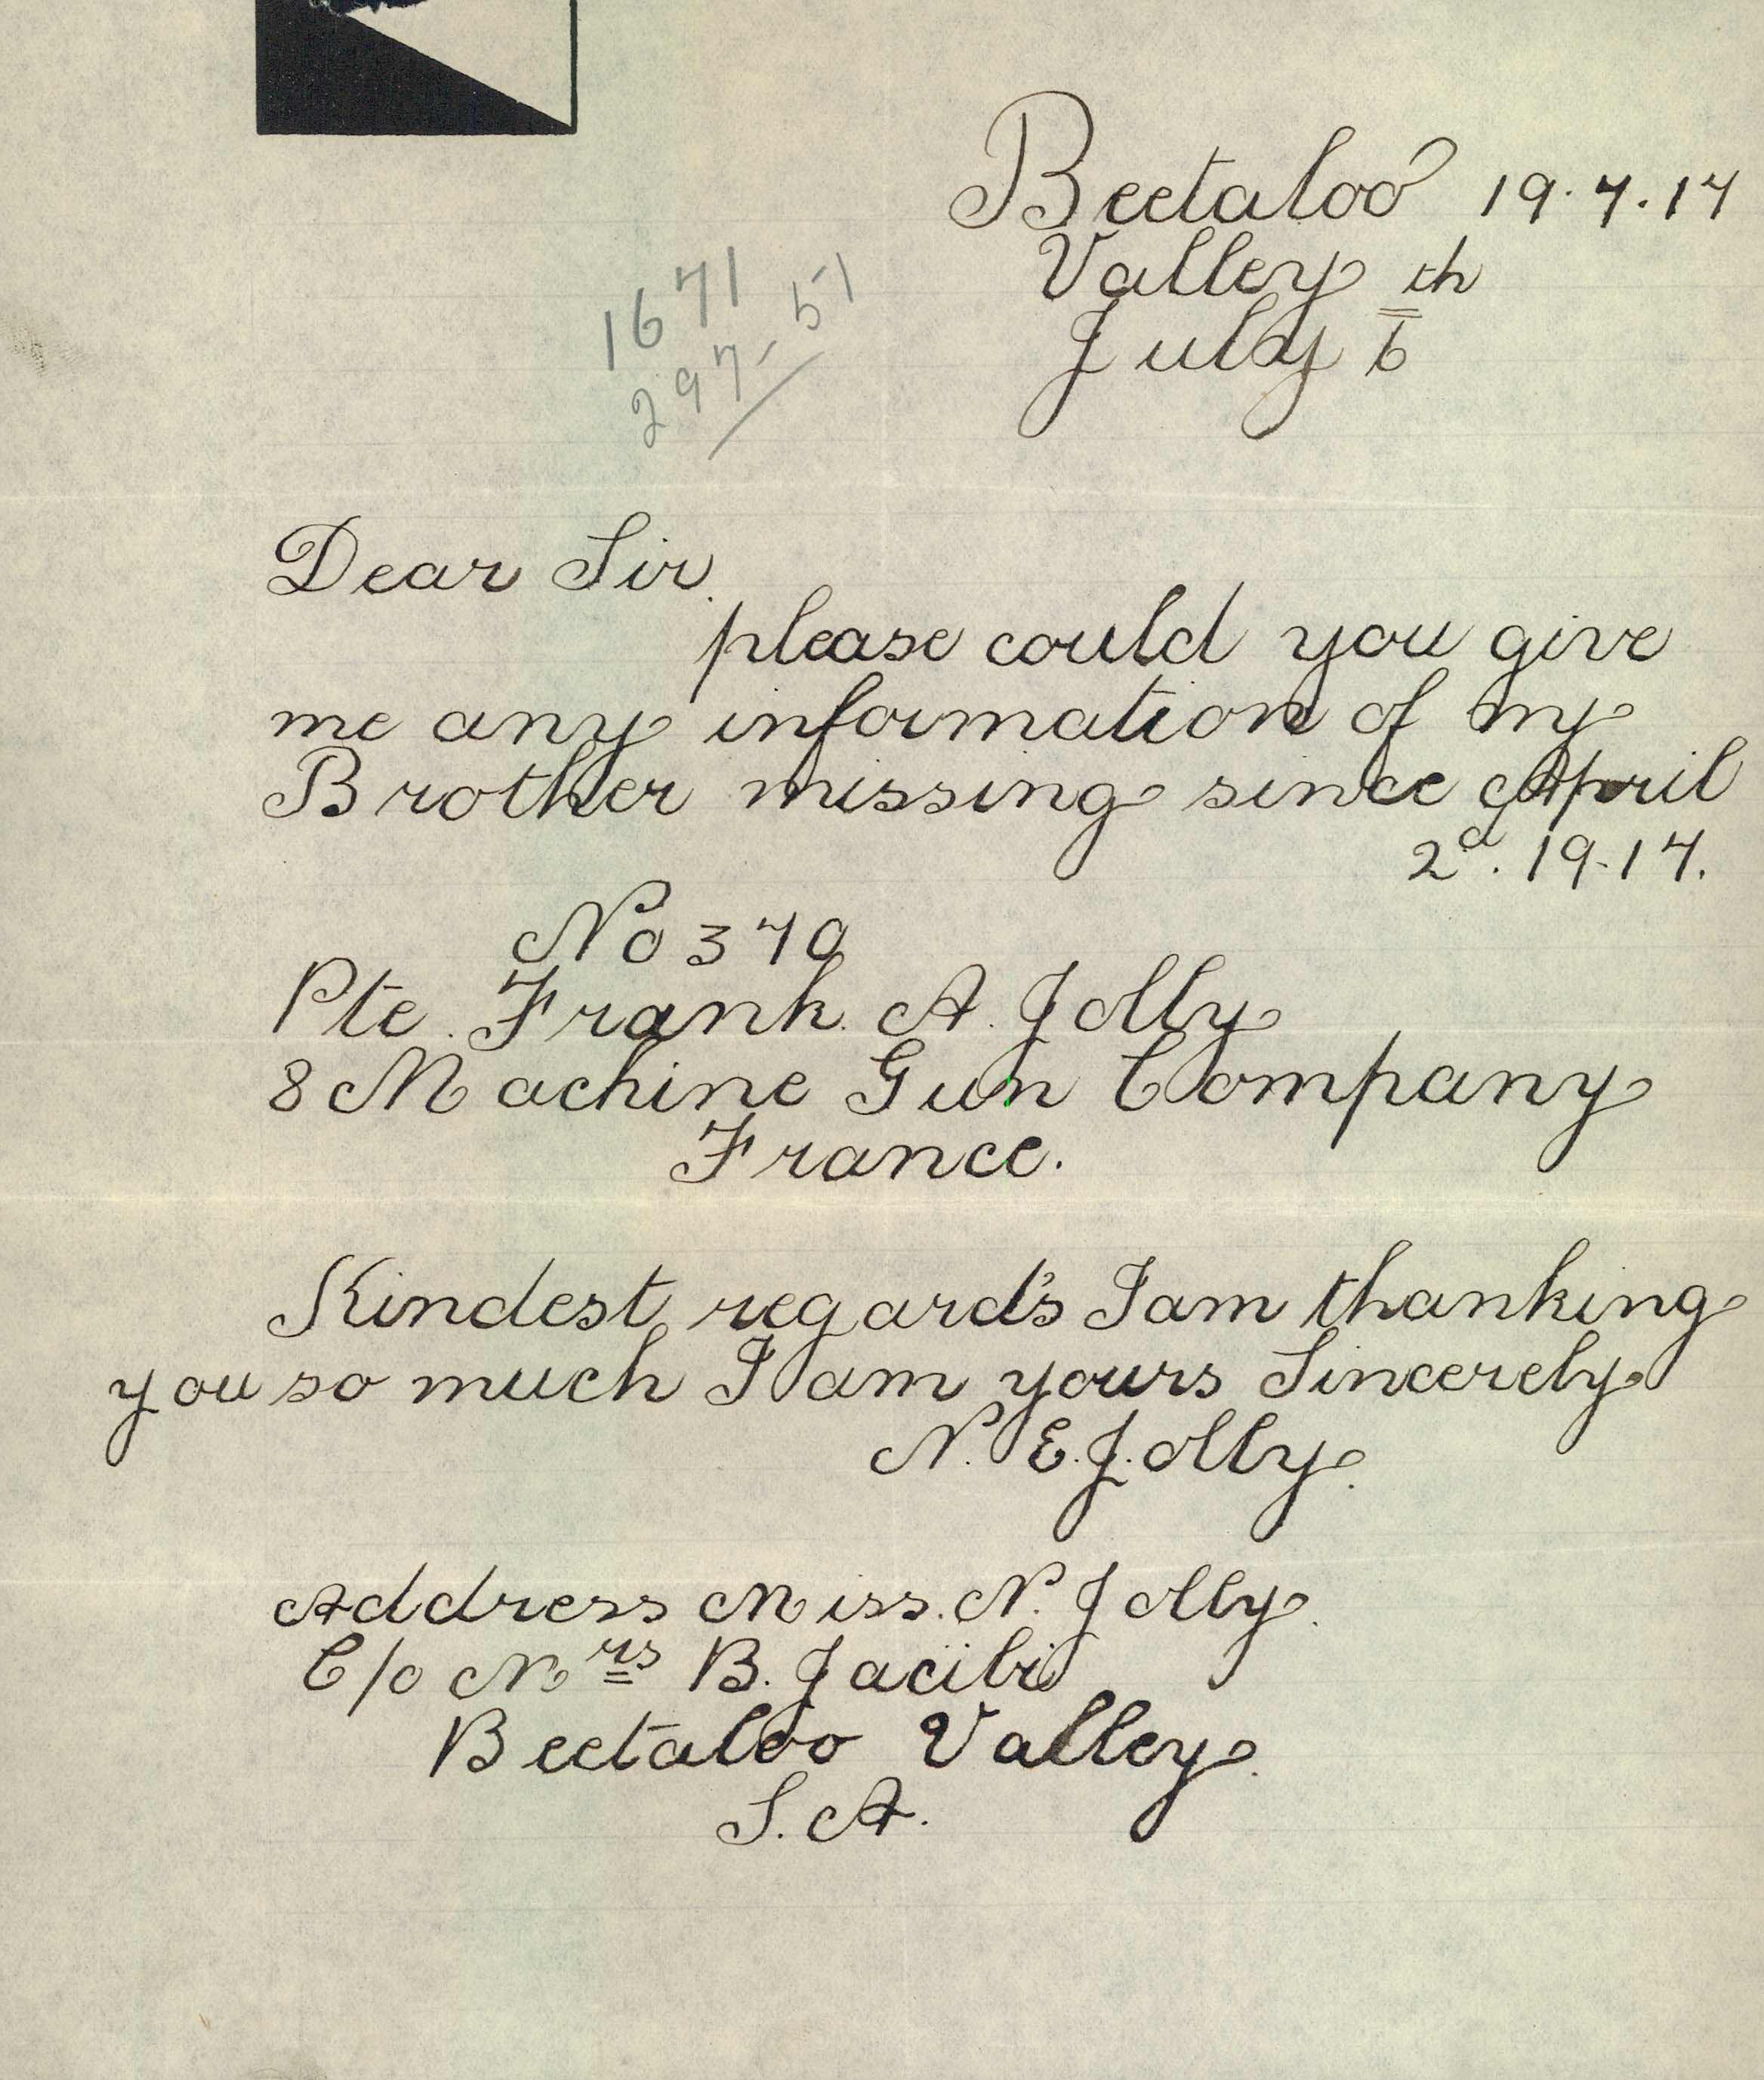 Beetaloo 19.7.17
Valley th
July 6
1671
297-51
Dear Sir.
please could you give
me any information of my
Brother missing since April
2d. 19.17.
No 370
Pte. Frank. A. Jolly
8 Machine Gun Company
France.
Kindest regard's I am thanking
you so much I am yours Sincerely
N. E. Jolly.
Address Miss. N. Jolly.
C/o Mrs B. Jacibi
Beetaloo Valley.
S. A.